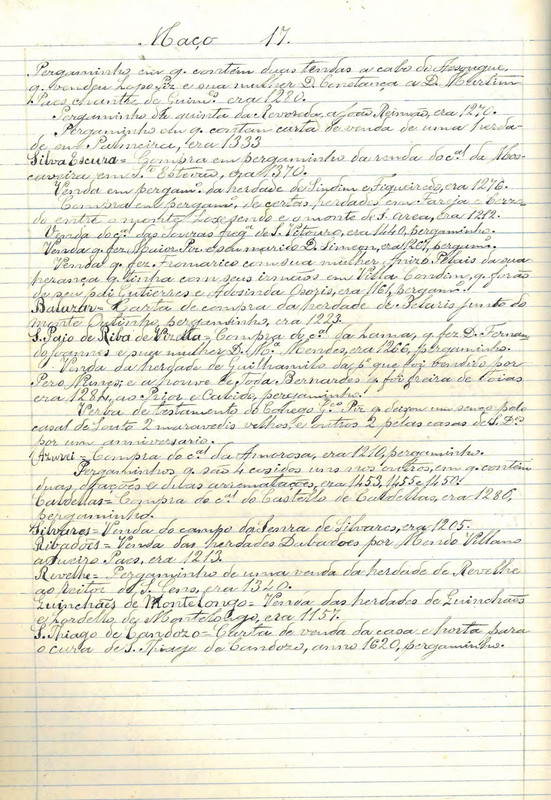 Maço 17.
Pergaminho em q. contém duas tendas a cabo do Assougue,
q. vendeu Lopo Piz e sua mulher D. Constança a D. Martim
Paes, chantre de Guim. era 1280.
Pergaminho da quinta da Revorêda, a João Reimão, era 1270.
Pergaminho em q. contem carta de venda de uma herda-
de em Palmeira, era 1333
Silva Escura = Compra em pergaminho da renda do c.al da Mos-
caveira em S.to Estevão, era 1370.
Venda em pergam.o da herdade do Sindim e Figueiredo, era 1276.
Compra em pergam.o de certas herdades em Fareja e
do entre o monte e o monte de S. era 1212.
Venda do c.al das freg.a de S. Victouro, era 1440, pergaminho.
Venda q. fez Maior Per. e seu marido D. Simeon, era 1261, pergam.o
Venda q. fez Fromarico com sua mulher Pelais da sua
herança q. tinha com seus irmãos em Villa Condim, q. forão
de seu pai Gutierres e Adosinda Osoris, era 1161, pergam.o
Balazar = Carta de compra da herdade de Pelaris junto do
monte pergaminho, era 1223.
S. Paio de Riba de Vizella = Compra do c.al da Lama, q. fez D. Fernan-
do Joannes e sua mulher D. M.a Mendes, era 1266, pergaminho.
Venda da herdade de Guilhamil da p.e que foi vendido por
Pero Nunes; e a houve de João Bernardes q. foi freira de
era 1284, ao Prior e Cabido, pergaminho.
Verba de testamento do Conego G.co Piz q. deixou um pelo
casal de Souto 2 maravedis velhos e outros 2 pelas casas de S. D.os
por um anniversario.
Azurei = Compra do c.al da Amorosa, era 1210, pergaminho.
Pergaminhos q. são 4 cosidos uns nos outros, em q. contém
duas e ditas arrematações, era 1453, 1455 e 1450.
Caldellas = Compra do c.al do Castello de Caldellas, era 1280,
pergaminho.
Silvares = Venda do campo da Senra de Silvares, era 1205.
Ribadões = Venda das herdades Dabadoes por Mendo Villano
a Gueiro Paes, era 1213.
Revelhe = Pergaminho de uma venda da herdade de Revelhe
ao reitor de S. Gens, era 1320.
Guinchães de Monte Longo = Venda das herdades de Guinchães
e Lordello de Montelongo, era 1151.
S. Thiago de Candozo = Carta de venda da casa e horta para
o cura de S. Thiago de Candozo, anno 1620, pergaminho.